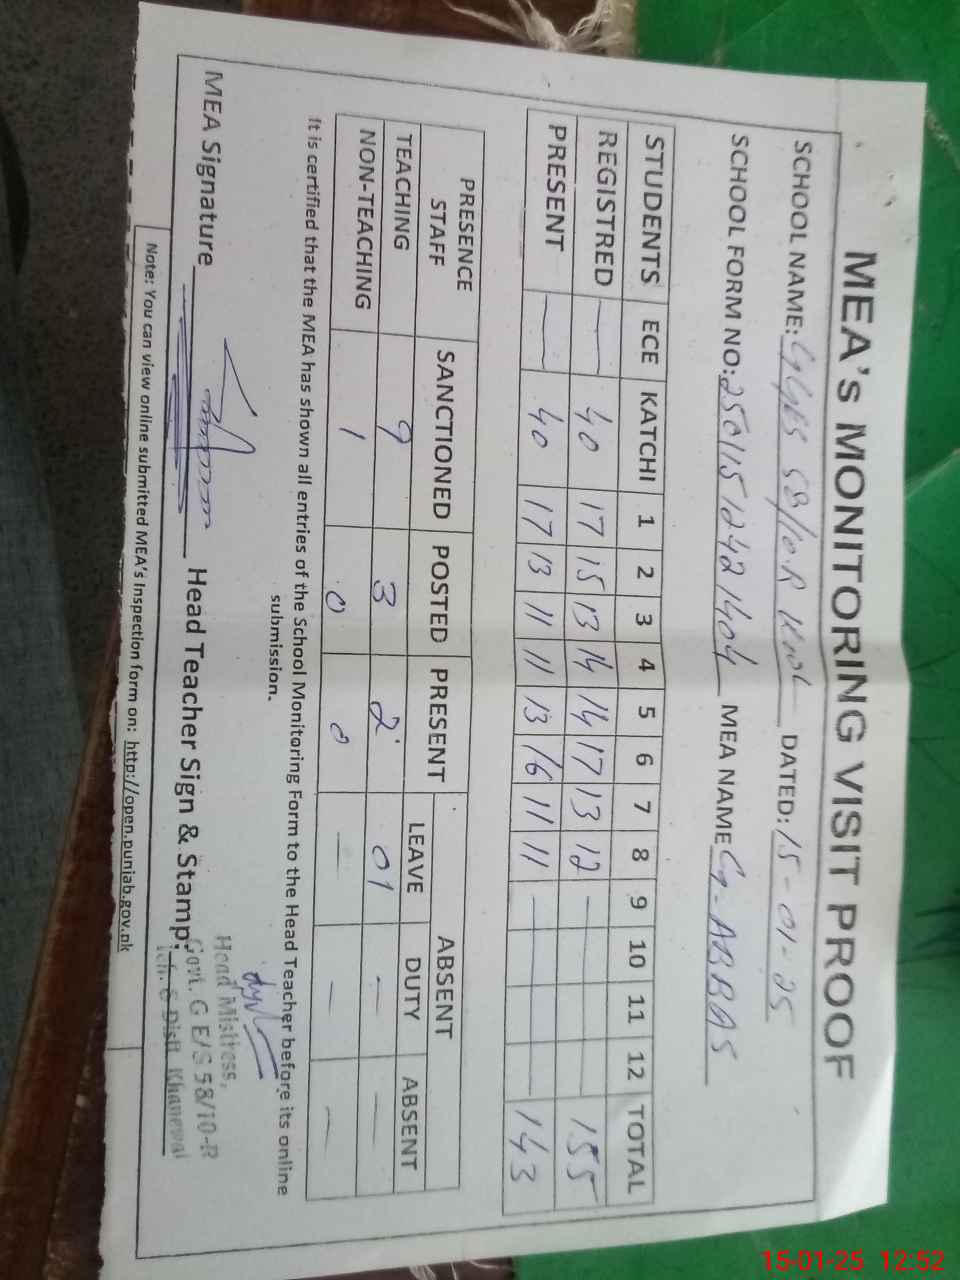 MEA's MONITORING VISIT PROOF
SCHOOL NAME: GGES 58/10.R Kwl DATED: 15-01-25
SCHOOL FORM NO: 25011512421404 MEA NAME G-ABBAS
STUDENTS ECE KATCHI 1 2 3 4 5 6 7 8 9 10 11 12 TOTAL
REGISTRED — 40 17 15 13 14 14 17 13 12 — 155
PRESENT — 40 17 13 11 11 13 16 11 11 — 143
PRESENCE STAFF SANCTIONED POSTED PRESENT ABSENT
LEAVE DUTY ABSENT
TEACHING 9 3 2 01 — —
NON-TEACHING 1 0 0 — — —
It is certified that the MEA has shown all entries of the School Monitoring Form to the Head Teacher before its online
submission.
MEA Signature Head Teacher Sign & Stamp:
Head Mistress,
Govt. G E/S 58/10-R
Teh. & Distt Khanewal
Note: You can view online submitted MEA's Inspection form on: http://open.punjab.gov.pk
15-01-25 12:52